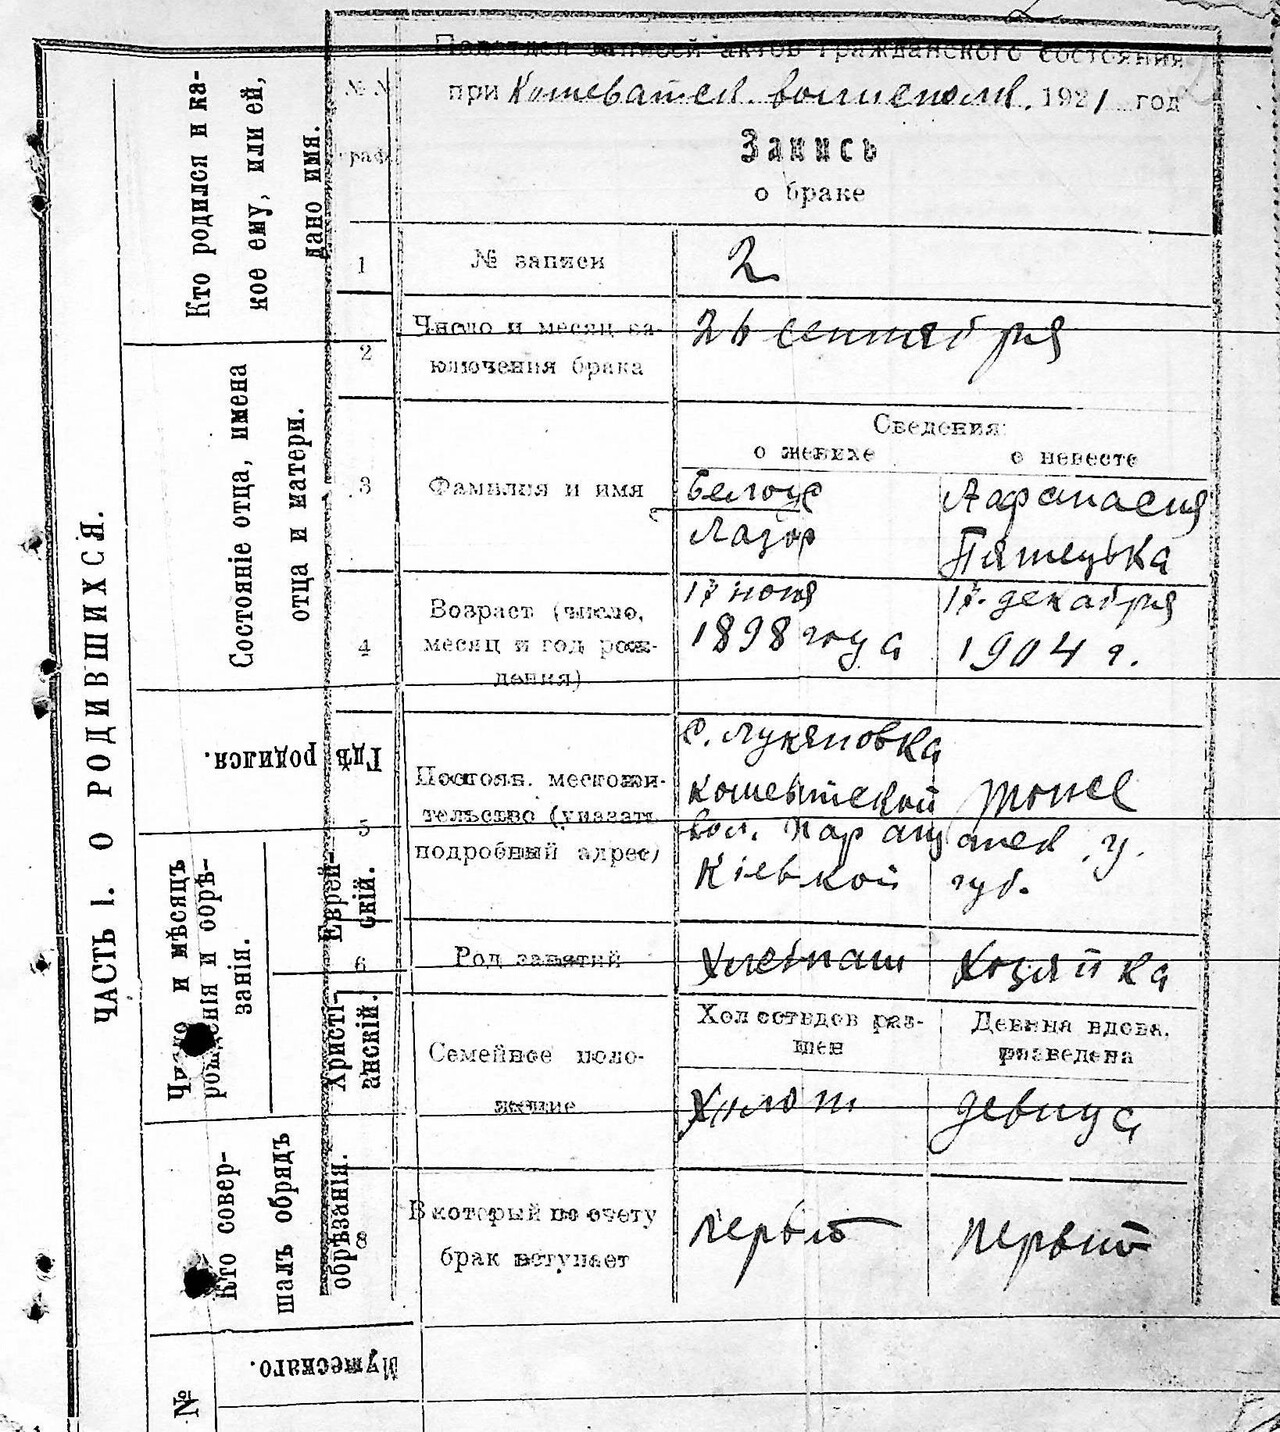 ЧАСТЬ I. О РОДИВШИХСЯ.
Кто родился и ка-
кое ему, или ей,
дано имя.
Состояніе отца, имена
отца и матери.
Гдѣ родился.
Число и мѣсяцъ
рожденія и обрѣ-
занія.
Еврей-
скій.
Христі-
анскій.
Кто совер-
шалъ обрядъ
обрѣзанія.
Мужескаго.
№
Подотдел записей актов гражданского состояния
при волисполк. 1921 год
Запись
о браке
№ №
граф
1
№ записи
2
2
Число и месяц за-
ключения брака
26 сентября
Сведения:
о женихе
о невесте
3
Фамилия и имя
Белоус
Лазор
Афанасия
4
Возраст (число,
месяц и год рож-
дения)
17 июня
1898 года
17. декабря
1904 г.
5
Постоян. местожи-
тельство (указать
подробный адрес)
с. Лукяновка
вол.
у.
губ.
тоже
6
Род занятий
Хлебпаш
Хозяйка
Семейное поло-
жение
Хол
Девица вдова,
разведена
Холост
девица
8
В который по счету
брак вступает
первый
первый